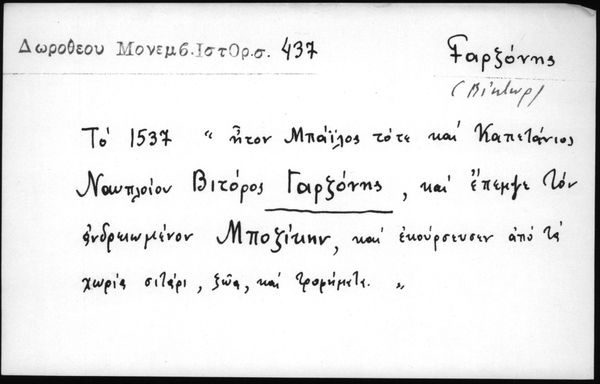 Δωροθεου Μονεμβ.Ιστ0ρ.σ. 437
Γαρζόνης
(Βίκτωρ)
Τό 1537 " ἦτον Μπάϊλος τότε καί Καπετάνιος
Ναυπλοίου Βιτόρος Γαρζόνης, καί ἔπεμψε τόν
ἀνδρειωμένον Μποζίκην, καί ἐκούρσευσεν ἀπό τά
χωρία σιτάρι, ζῶα, καί τροφήματα. "